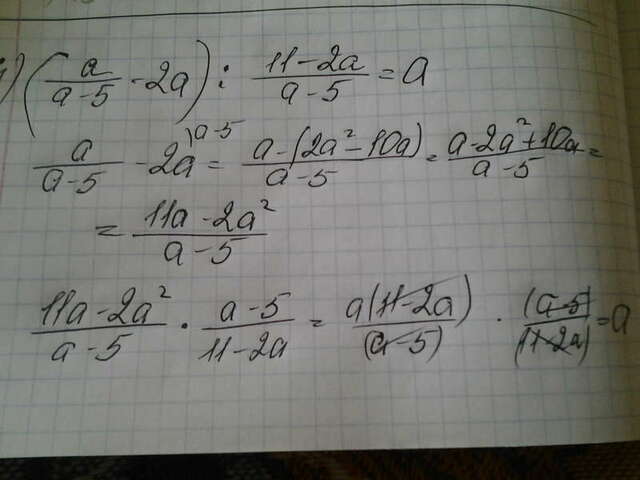 (a/(a-5) - 2a) : (11-2a)/(a-5) = a
a/(a-5) - 2a^(a-5) = (a-(2a²-10a))/(a-5) = (a-2a²+10a)/(a-5) =
= (11a-2a²)/(a-5)
(11a-2a²)/(a-5) · (a-5)/(11-2a) = a(11-2a)/(a-5) · (a-5)/(11-2a) = a